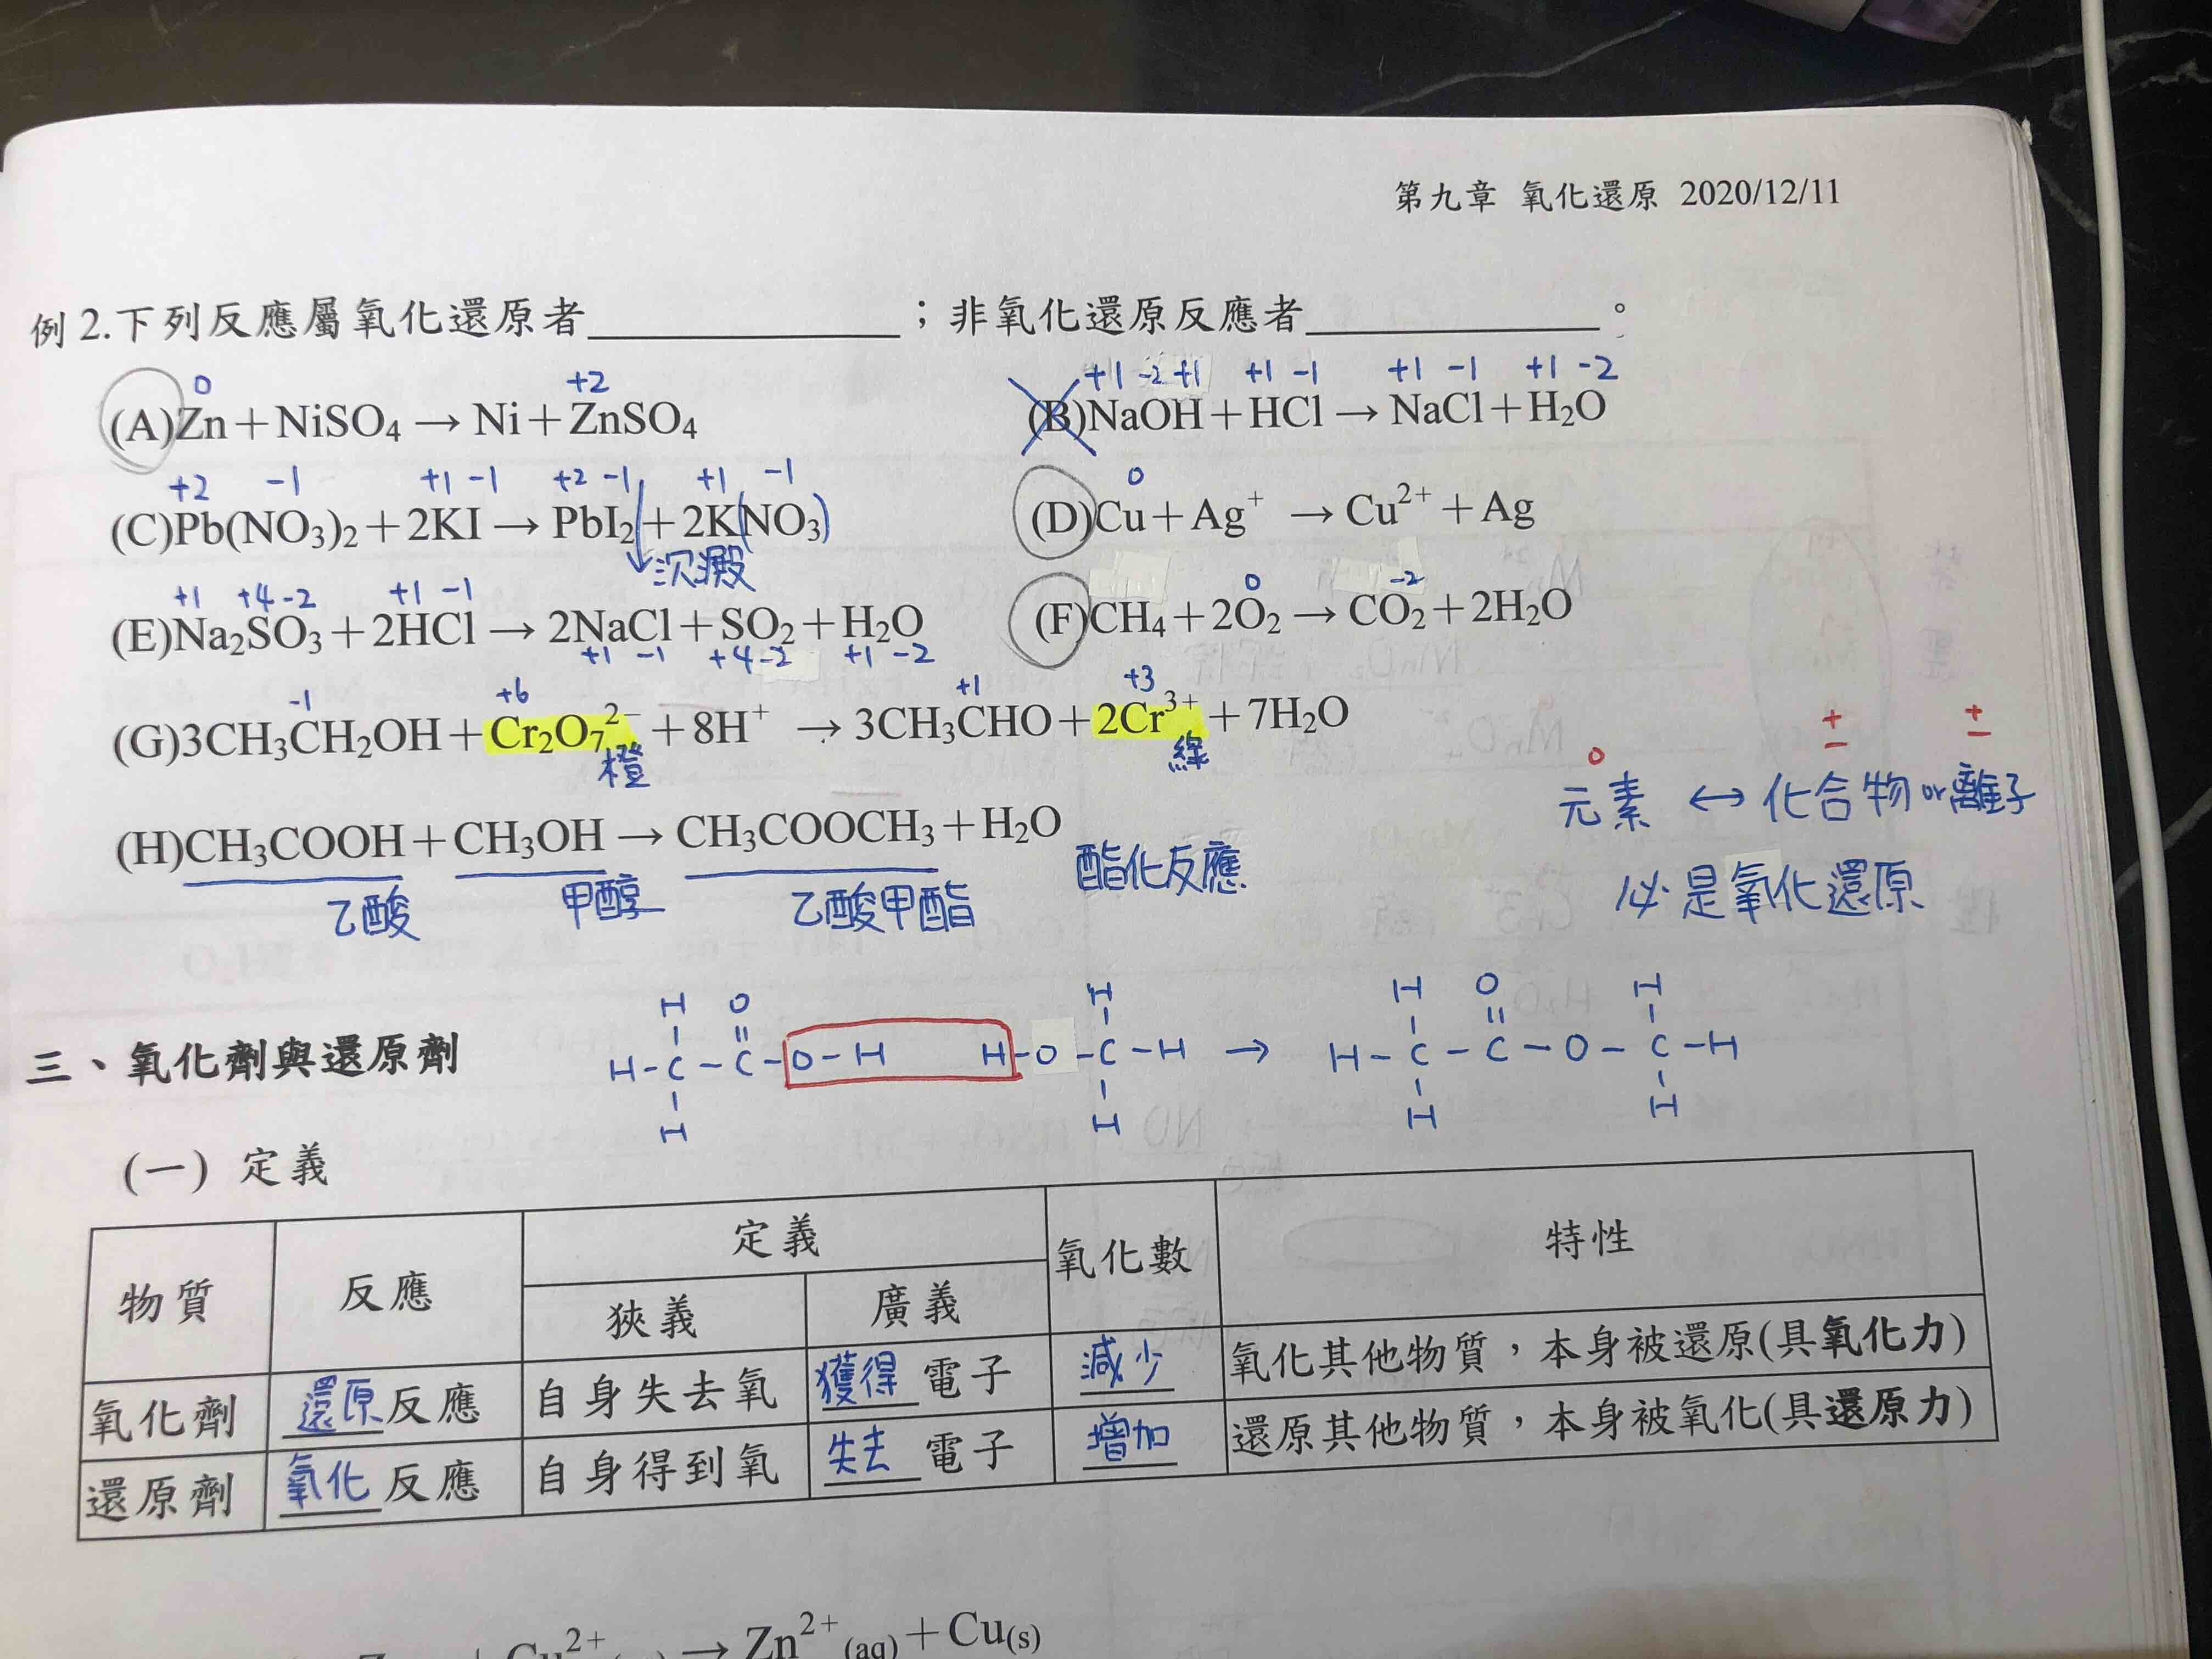 第九章 氧化還原 2020/12/11
例2.下列反應屬氧化還原者____________；非氧化還原反應者____________。
0 +2 +1 -2 +1 +1 -1 +1 -1 +1 -2
(A)Zn+NiSO₄→Ni+ZnSO₄ (B)NaOH+HCl→NaCl+H₂O
+2 -1 +1 -1 +2 -1 +1 -1 0
(C)Pb(NO₃)₂+2KI→PbI₂↓+2K(NO₃) (D)Cu+Ag⁺→Cu²⁺+Ag
沉澱
+1 +4 -2 +1 -1 0 -2
(E)Na₂SO₃+2HCl→2NaCl+SO₂+H₂O (F)CH₄+2O₂→CO₂+2H₂O
+1 -1 +4 -2 +1 -2
-1 +6 +1 +3
(G)3CH₃CH₂OH+Cr₂O₇²⁻+8H⁺→3CH₃CHO+2Cr³⁺+7H₂O
橙 綠
0 ± ±
元素 ↔ 化合物 or 離子
必是氧化還原
(H)CH₃COOH+CH₃OH→CH₃COOCH₃+H₂O 酯化反應
乙酸 甲醇 乙酸甲酯
H O H H O H
H-C-C-O-H H-O-C-H → H-C-C-O-C-H
H H H H
三、氧化劑與還原劑
(一) 定義
物質 反應 定義 氧化數 特性
狹義 廣義
氧化劑 還原反應 自身失去氧 獲得電子 減少 氧化其他物質，本身被還原(具氧化力)
還原劑 氧化反應 自身得到氧 失去電子 增加 還原其他物質，本身被氧化(具還原力)
Cu²⁺ → Zn²⁺(aq)+Cu(s)